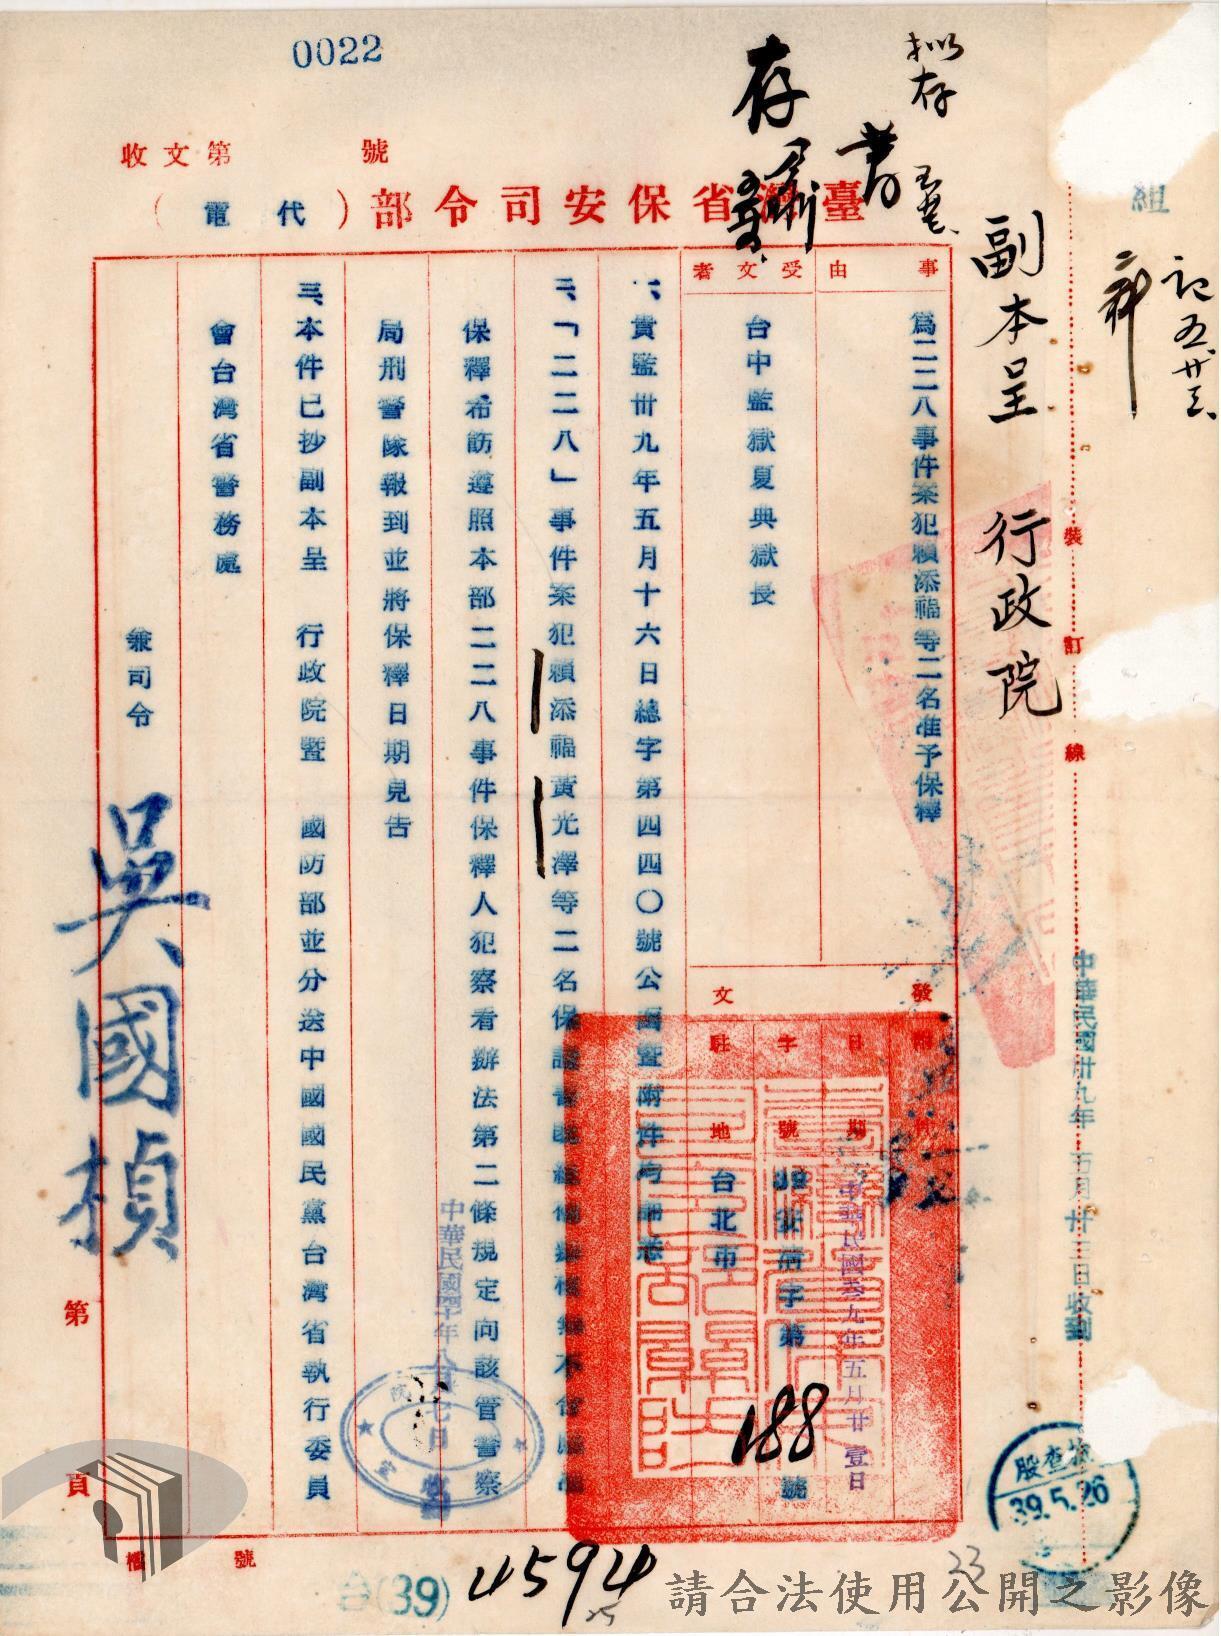 0022
收文第　　號
臺灣省保安司令部（代電）
擬存
存
副本呈　行政院
組
事由
為二二八事件案犯賴添福等二名准予保釋
受文者
台中監獄夏典獄長
發文
日期
中華民國叁九年五月廿壹日
字號
字第188號
駐地
台北市
一、貴監卅九年五月十六日總字第四四〇號公函暨附件均
二、「二二八」事件案犯賴添福黃光澤等二名保
保釋希飭遵照本部二二八事件保釋人犯察看辦法第二條規定向該管警察
局刑警隊報到並將保釋日期見告
三、本件已抄副本呈　行政院暨　國防部並分送中國國民黨台灣省執行委員
會台灣省警務處
兼司令　吳國楨
裝訂線
中華民國卅九年五月廿三日收到
查股
39.5.26
中華民國四十年八月
七日
第　頁
檔　號
台(39)4594
25
23
請合法使用公開之影像